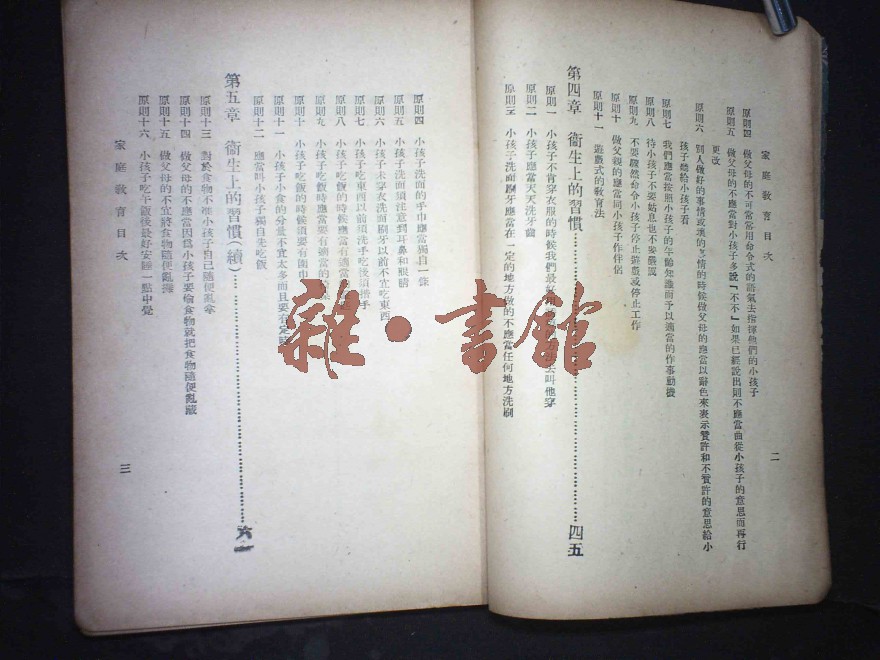 家庭教育目次
二
原則四 做父母的不可常常用命令式的語氣去指揮他們的小孩子
原則五 做父母的不應當對小孩子多說「不不」如果已經說出則不應當曲從小孩子的意思而再行
更改
原則六 別人做好的事情或壞的事情的時候做父母的應當以辭色來表示贊許和不贊許的意思給小
孩子聽給小孩子看
原則七 我們應當按照小孩子的年齡知識而予以適當的作事動機
原則八 待小孩子不要姑息也不要嚴厲
原則九 不要驟然命令小孩子停止遊戲或停止工作
原則十 做父親的應當同小孩子作伴侶
原則十一 遊戲式的教育法
第四章 衞生上的習慣 四五
原則一 小孩子不肯穿衣服的時候我們最好用 去叫他穿
原則二 小孩子應當天天洗牙齒
原則三 小孩子洗面刷牙應當在一定的地方做的不應當任何地方洗刷
原則四 小孩子洗面的手巾應當獨自一條
原則五 小孩子洗面須注意到耳鼻和眼睛
原則六 小孩子未穿衣洗面刷牙以前不宜吃東西
原則七 小孩子吃東西以前須洗手吃後須揩手
原則八 小孩子吃飯的時候應當有適當的
原則九 小孩子吃飯時應當要有適當的
原則十 小孩子吃飯的時候須要有圍巾
原則十一 小孩子小食的分量不宜太多而且要有定時
原則十二 應當叫小孩子獨自先吃飯
第五章 衞生上的習慣(續) 六一
原則十三 對於食物不准小孩子自己隨便亂拿
原則十四 做父母的不應當因爲小孩子要偷食物就把食物隨便亂藏
原則十五 做父母的不宜將食物隨便亂攤
原則十六 小孩子吃午飯後最好安睡一點中覺
家庭教育目次
三
雜·書館